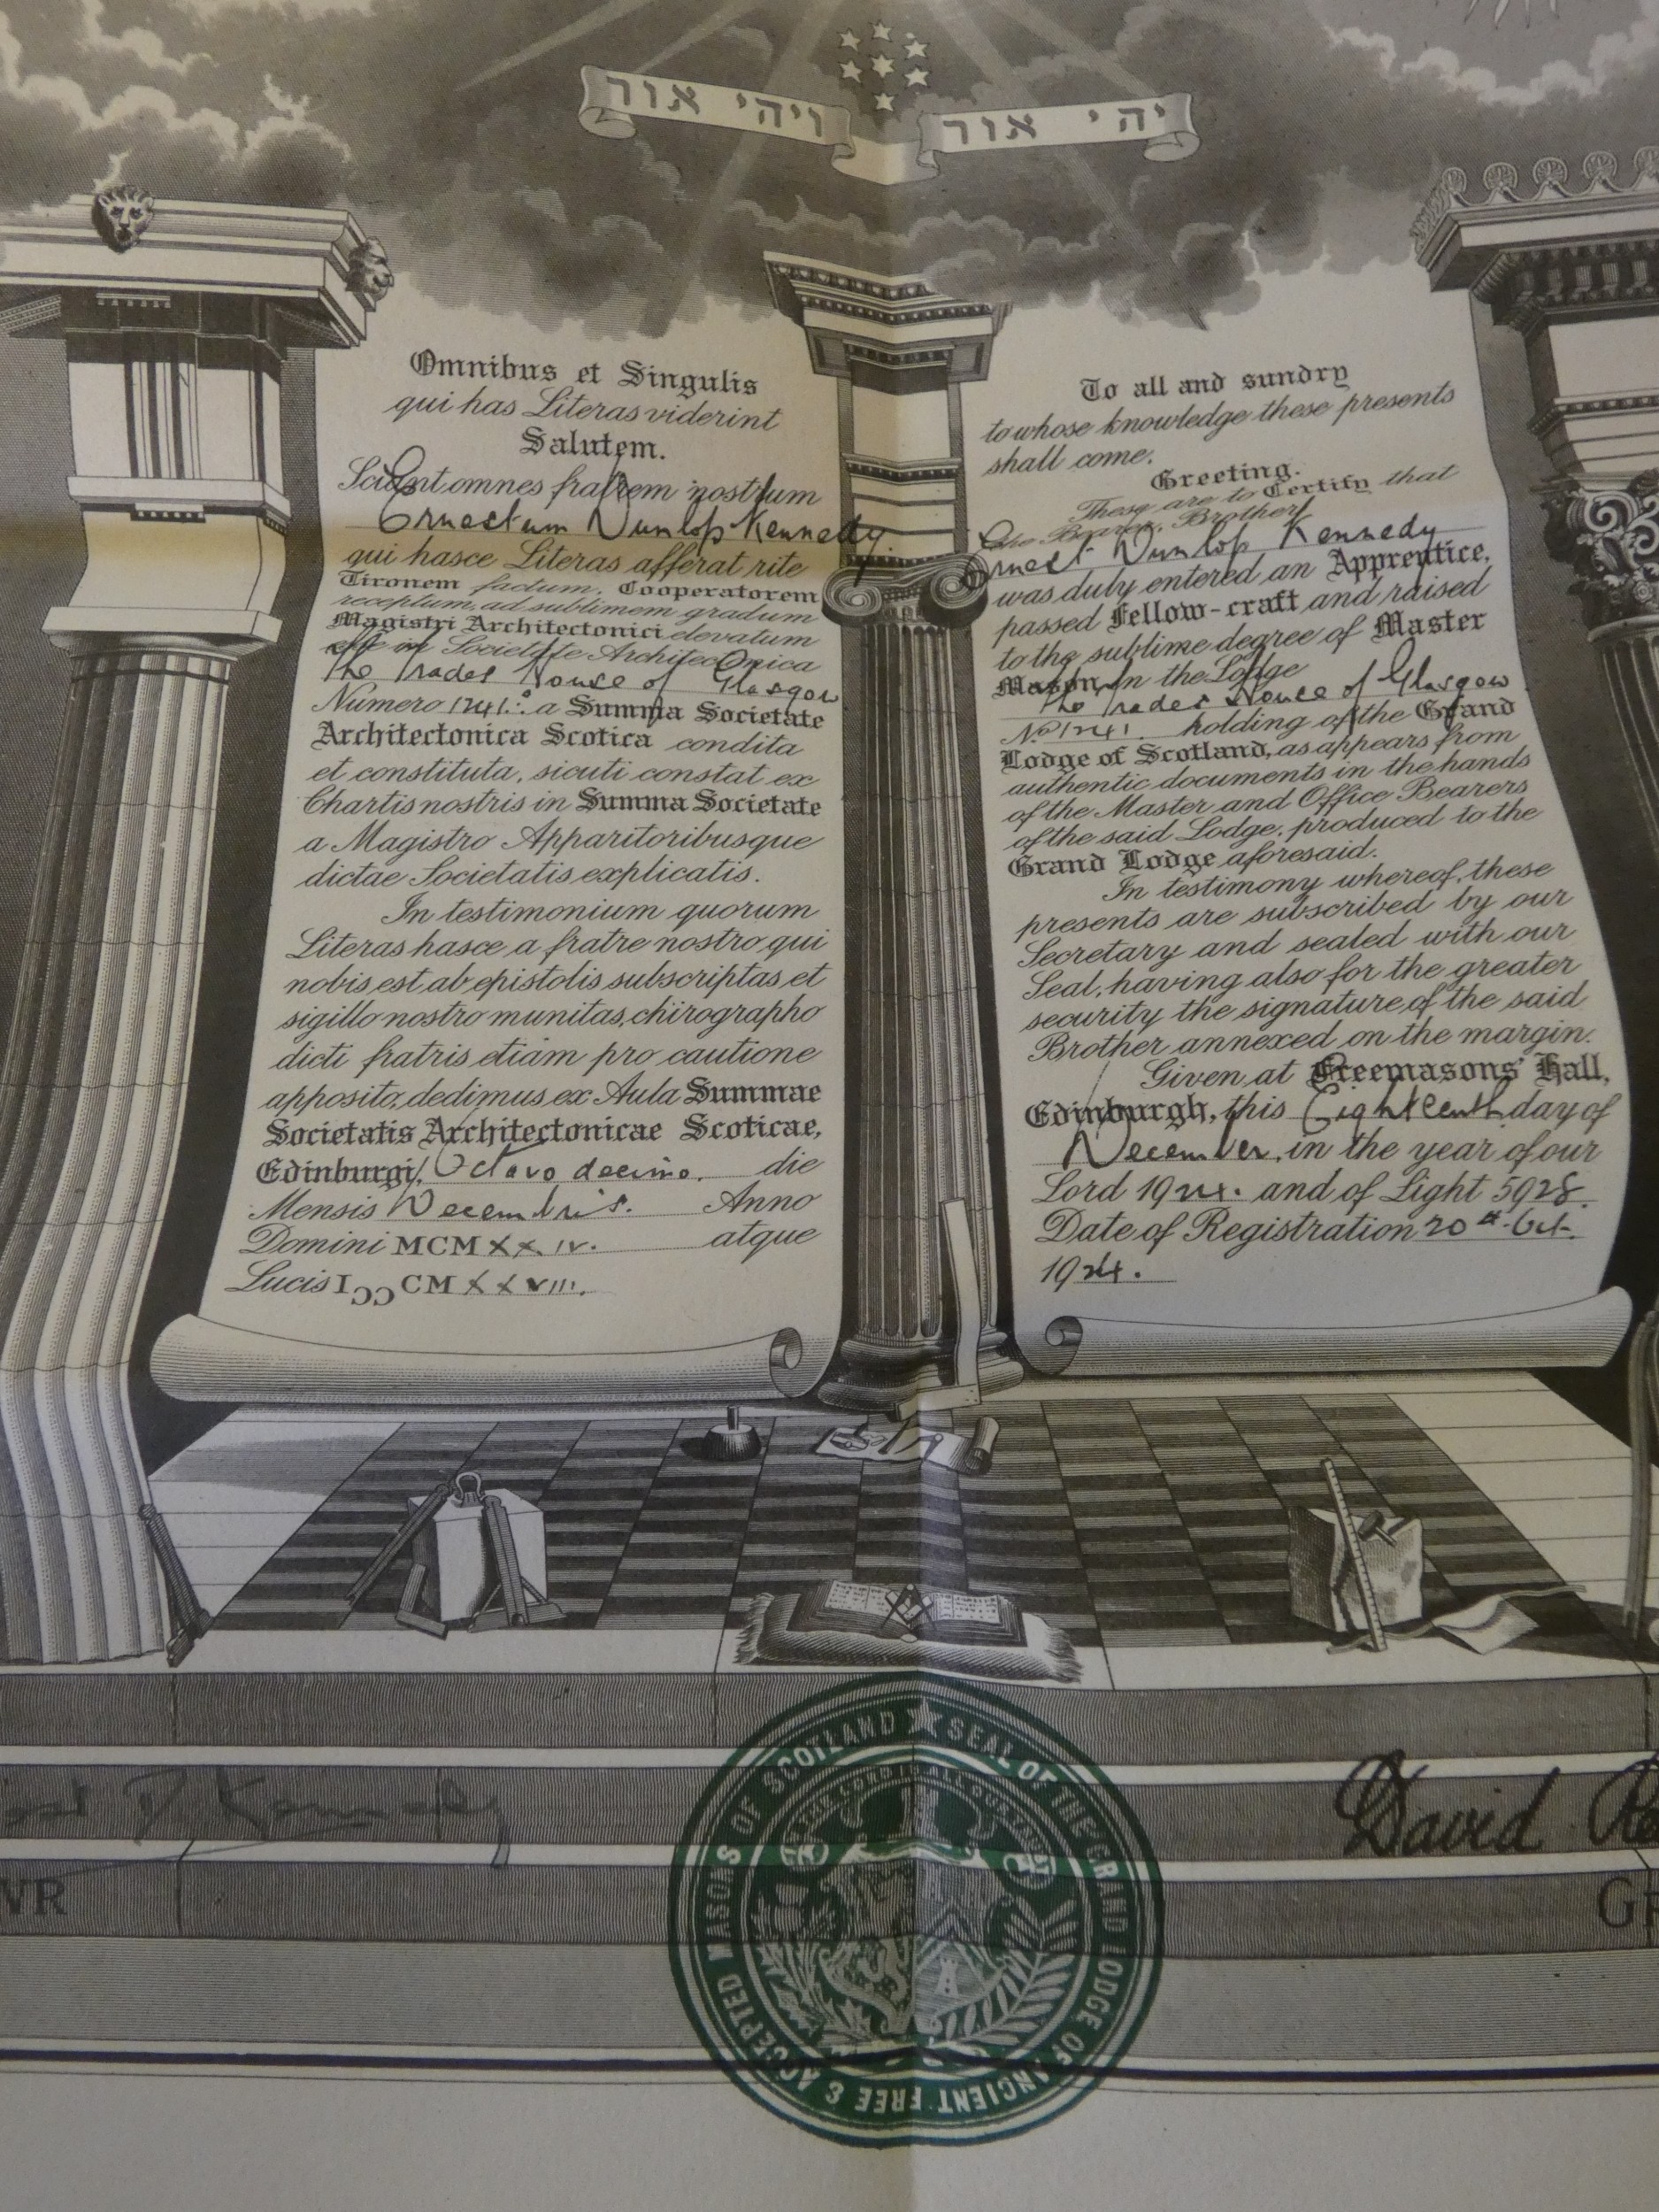 יהי אור
ויהי אור
Omnibus et Singulis
qui has Literas viderint
Salutem.
Sciant omnes fratrem nostrum
Ernestum Dunlop Kennedy
qui hasce Literas afferat rite
Tironem factum, Cooperatorem
receptum, ad sublimem gradum
Magistri Architectonici elevatum
in Societate Architectonica
The Trades House of Glasgow
Numero 1241. a Summa Societate
Architectonica Scotica condita
et constituta, sicuti constat ex
Chartis nostris in Summa Societate
a Magistro Apparitoribusque
dictae Societatis explicatis.
In testimonium quorum
Literas hasce a fratre nostro qui
nobis est ab epistolis subscriptas et
sigillo nostro munitas, chirographo
dicti fratris etiam pro cautione
apposito, dedimus ex Aula Summae
Societatis Architectonicae Scoticae,
Edinburgi, Octavo decimo. die
Mensis Decembris. Anno
Domini MCMXXIV. atque
Lucis IↃↃCMXXVIII.
To all and sundry
to whose knowledge these presents
shall come.
Greeting.
These are to Certify that
the Bearer, Brother
Ernest Dunlop Kennedy
was duly entered an Apprentice,
passed Fellow-craft and raised
to the sublime degree of Master
Mason in the Lodge
The Trades House of Glasgow
No 1241. holding of the Grand
Lodge of Scotland, as appears from
authentic documents in the hands
of the Master and Office Bearers
of the said Lodge, produced to the
Grand Lodge aforesaid.
In testimony whereof, these
presents are subscribed by our
Secretary and sealed with our
Seal, having also for the greater
security the signature of the said
Brother annexed on the margin.
Given at Freemasons' Hall,
Edinburgh, this Eighteenth day of
December, in the year of our
Lord 1924. and of Light 5928.
Date of Registration 20th Oct.
1924.
D Kennedy
David
SEAL OF THE GRAND LODGE OF ANCIENT FREE & ACCEPTED MASONS OF SCOTLAND
IN THE LORD IS ALL OUR TRUST